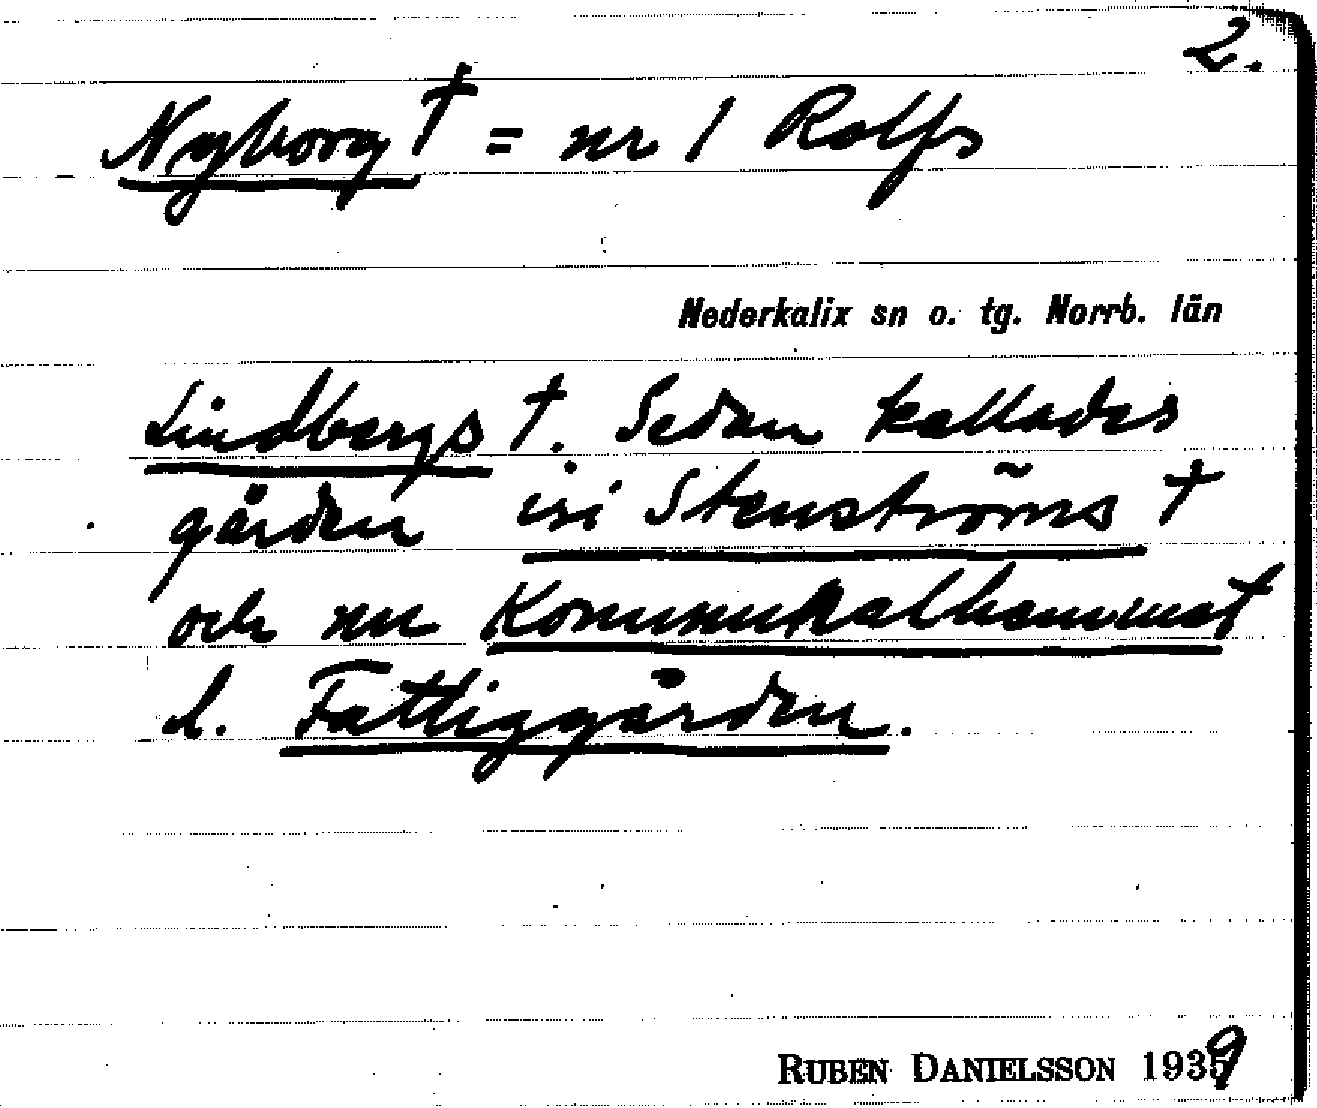 2.
Nyborg † = nr 1 Rolfs
Nederkalix sn o. tg. Norrb. län
Lindbergs †. Sedan kallades
gården isi Stenströms †
och nu Kommunalhemmet
l. Fattiggården.
RUBEN DANIELSSON 1939